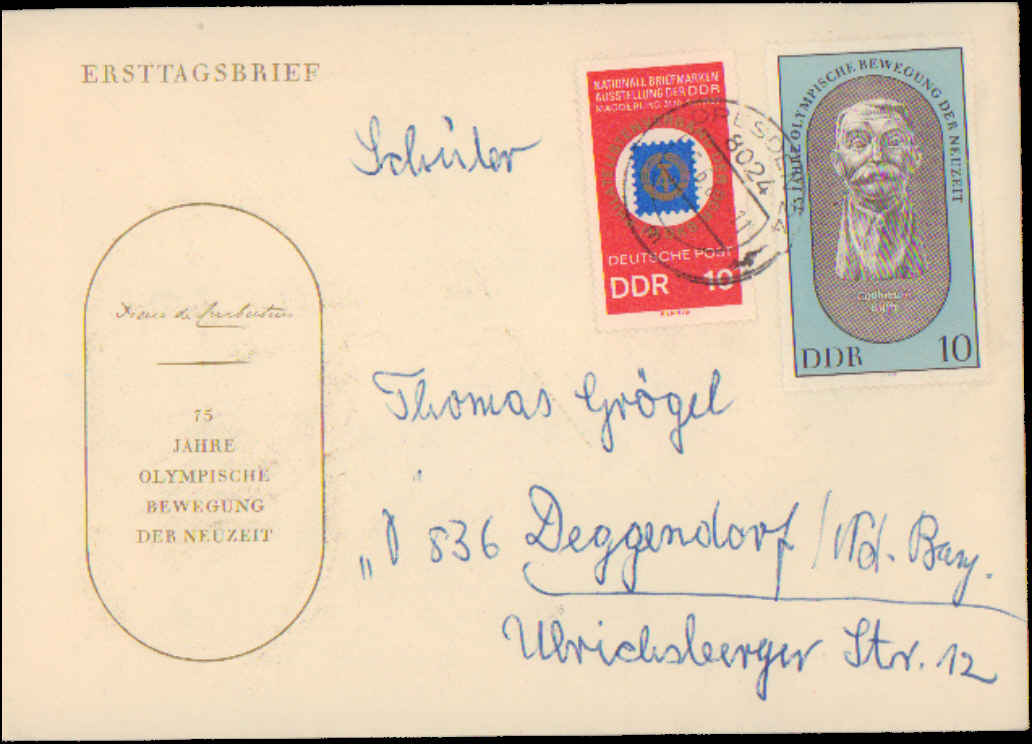 ERSTTAGSBRIEF
NATIONALE BRIEFMARKEN
AUSSTELLUNG DER DDR
DEUTSCHE POST
DDR 10
75 JAHRE OLYMPISCHE BEWEGUNG DER NEUZEIT
DDR 10
DRESDEN
8024
Schüler
Thomas Grögel
„D 836 Deggendorf / Nd. Bay.
Ulrichsberger Str. 12
Pierre de Coubertin
75
JAHRE
OLYMPISCHE
BEWEGUNG
DER NEUZEIT